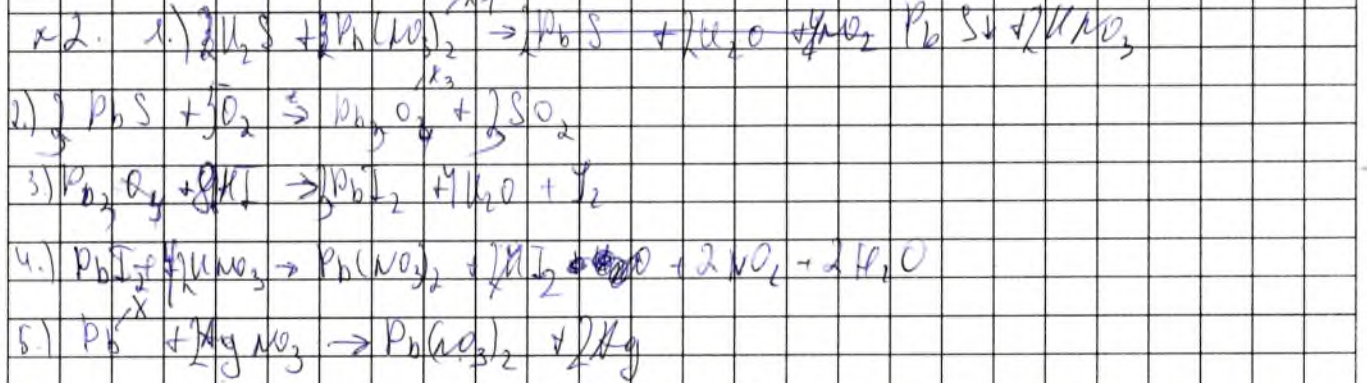 №2. 1.) H₂S + Pb(NO₃)₂ → 2PbS + 2H₂O + 4NO₂ PbS↓ + 2HNO₃
X₃
2.) 3PbS + 5O₂ → Pb₃O₄ + 3SO₂
3.) Pb₃O₄ + 8HI → 3PbI₂ + 4H₂O + I₂
4.) PbI₂ + 4HNO₃ → Pb(NO₃)₂ + I₂ + 2NO₂ + 2H₂O
X
5.) Pb + 2AgNO₃ → Pb(NO₃)₂ + 2Ag